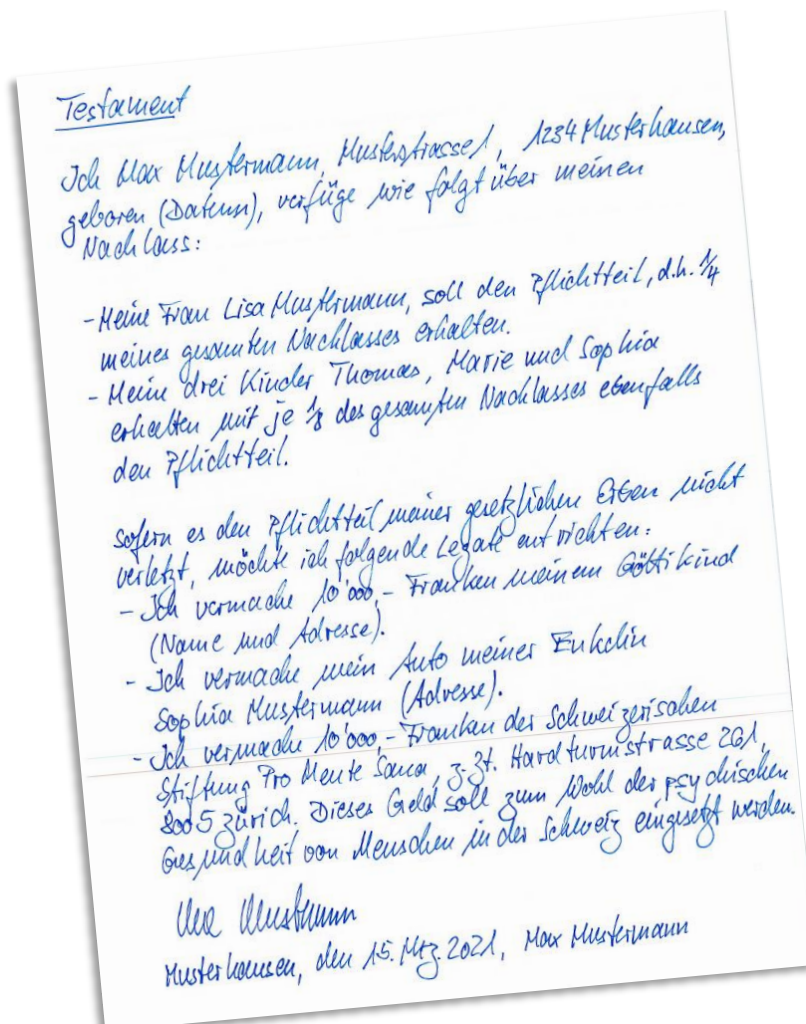 Testament
Ich Max Mustermann, Musterstrasse 1, 1234 Musterhausen,
geboren (Datum), verfüge wie folgt über meinen
Nachlass:
- Meine Frau Lisa Mustermann, soll den Pflichtteil, d.h. 1/4
meines gesamten Nachlasses erhalten.
- Meine drei Kinder Thomas, Marie und Sophia
erhalten mit je 1/8 des gesamten Nachlasses ebenfalls
den Pflichtteil.
Sofern es den Pflichtteil meiner gesetzlichen Erben nicht
verletzt, möchte ich folgende Legate entrichten:
- Ich vermache 10'000.- Franken meinem Göttikind
(Name und Adresse).
- Ich vermache mein Auto meiner Enkelin
Sophia Mustermann (Adresse).
- Ich vermache 10'000.- Franken der Schweizerischen
Stiftung Pro Mente Sana, z.Zt. Hardturmstrasse 261,
8005 Zürich. Dieses Geld soll zum Wohl der psychischen
Gesundheit von Menschen in der Schweiz eingesetzt werden.
Max Mustermann
Musterhausen, den 15. Mrz. 2021, Max Mustermann